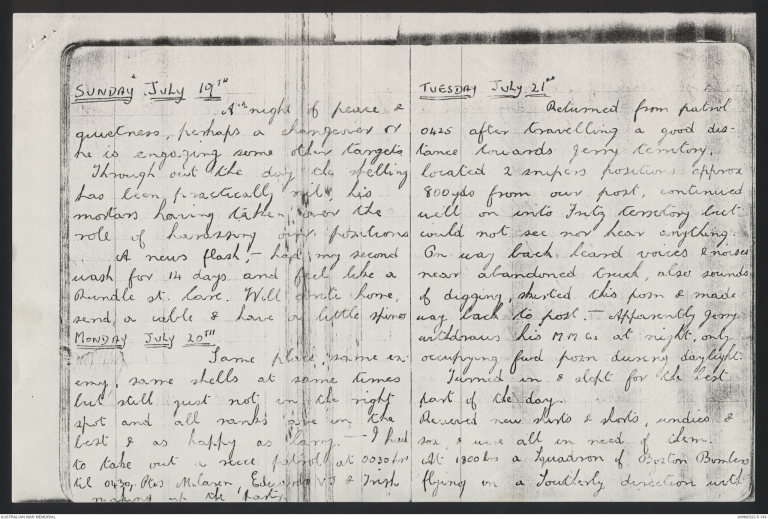 SUNDAY JULY 19TH
A night of peace &
quietness, perhaps a changeover or
he is engaging some other targets
Through out the day the shelling
has been practically nil, his
mortars having taken over the
role of harassing our positions
A news flash, – had my second
wash for 14 days and feel like a
Rundle St. lare. Will write home,
send a cable & have a little spine
MONDAY JULY 20TH
Same place, same en-
emy, same shells at same times
but still just not in the right
spot and all ranks are in the
best & as happy as larry. – I had
to take out a recce patrol at 0030 hr
til 0430, Ptes McLaren, Edwards V J & Irish
making up the party
TUESDAY JULY 21st
Returned from patrol
0425 after travelling a good dis-
tance towards Jerry territory,
located 2 snipers positions approx
800yds from our post, continued
well on into Fritz territory but
could not see nor hear anything.
On way back heard voices & noises
near abandoned truck, also sounds
of digging, skirted this posn & made
way back to post. – Apparently Jerry
withdraws his M M Gs at night, only
occupying fwd posn during daylight.
Turned in & slept for the best
part of the day.
Received new shirts & shorts, undies &
sox & were all in need of them.
At 1800 hrs a Squadron of Boston Bombers
flying on a Southerly direction with
AUSTRALIAN WAR MEMORIAL